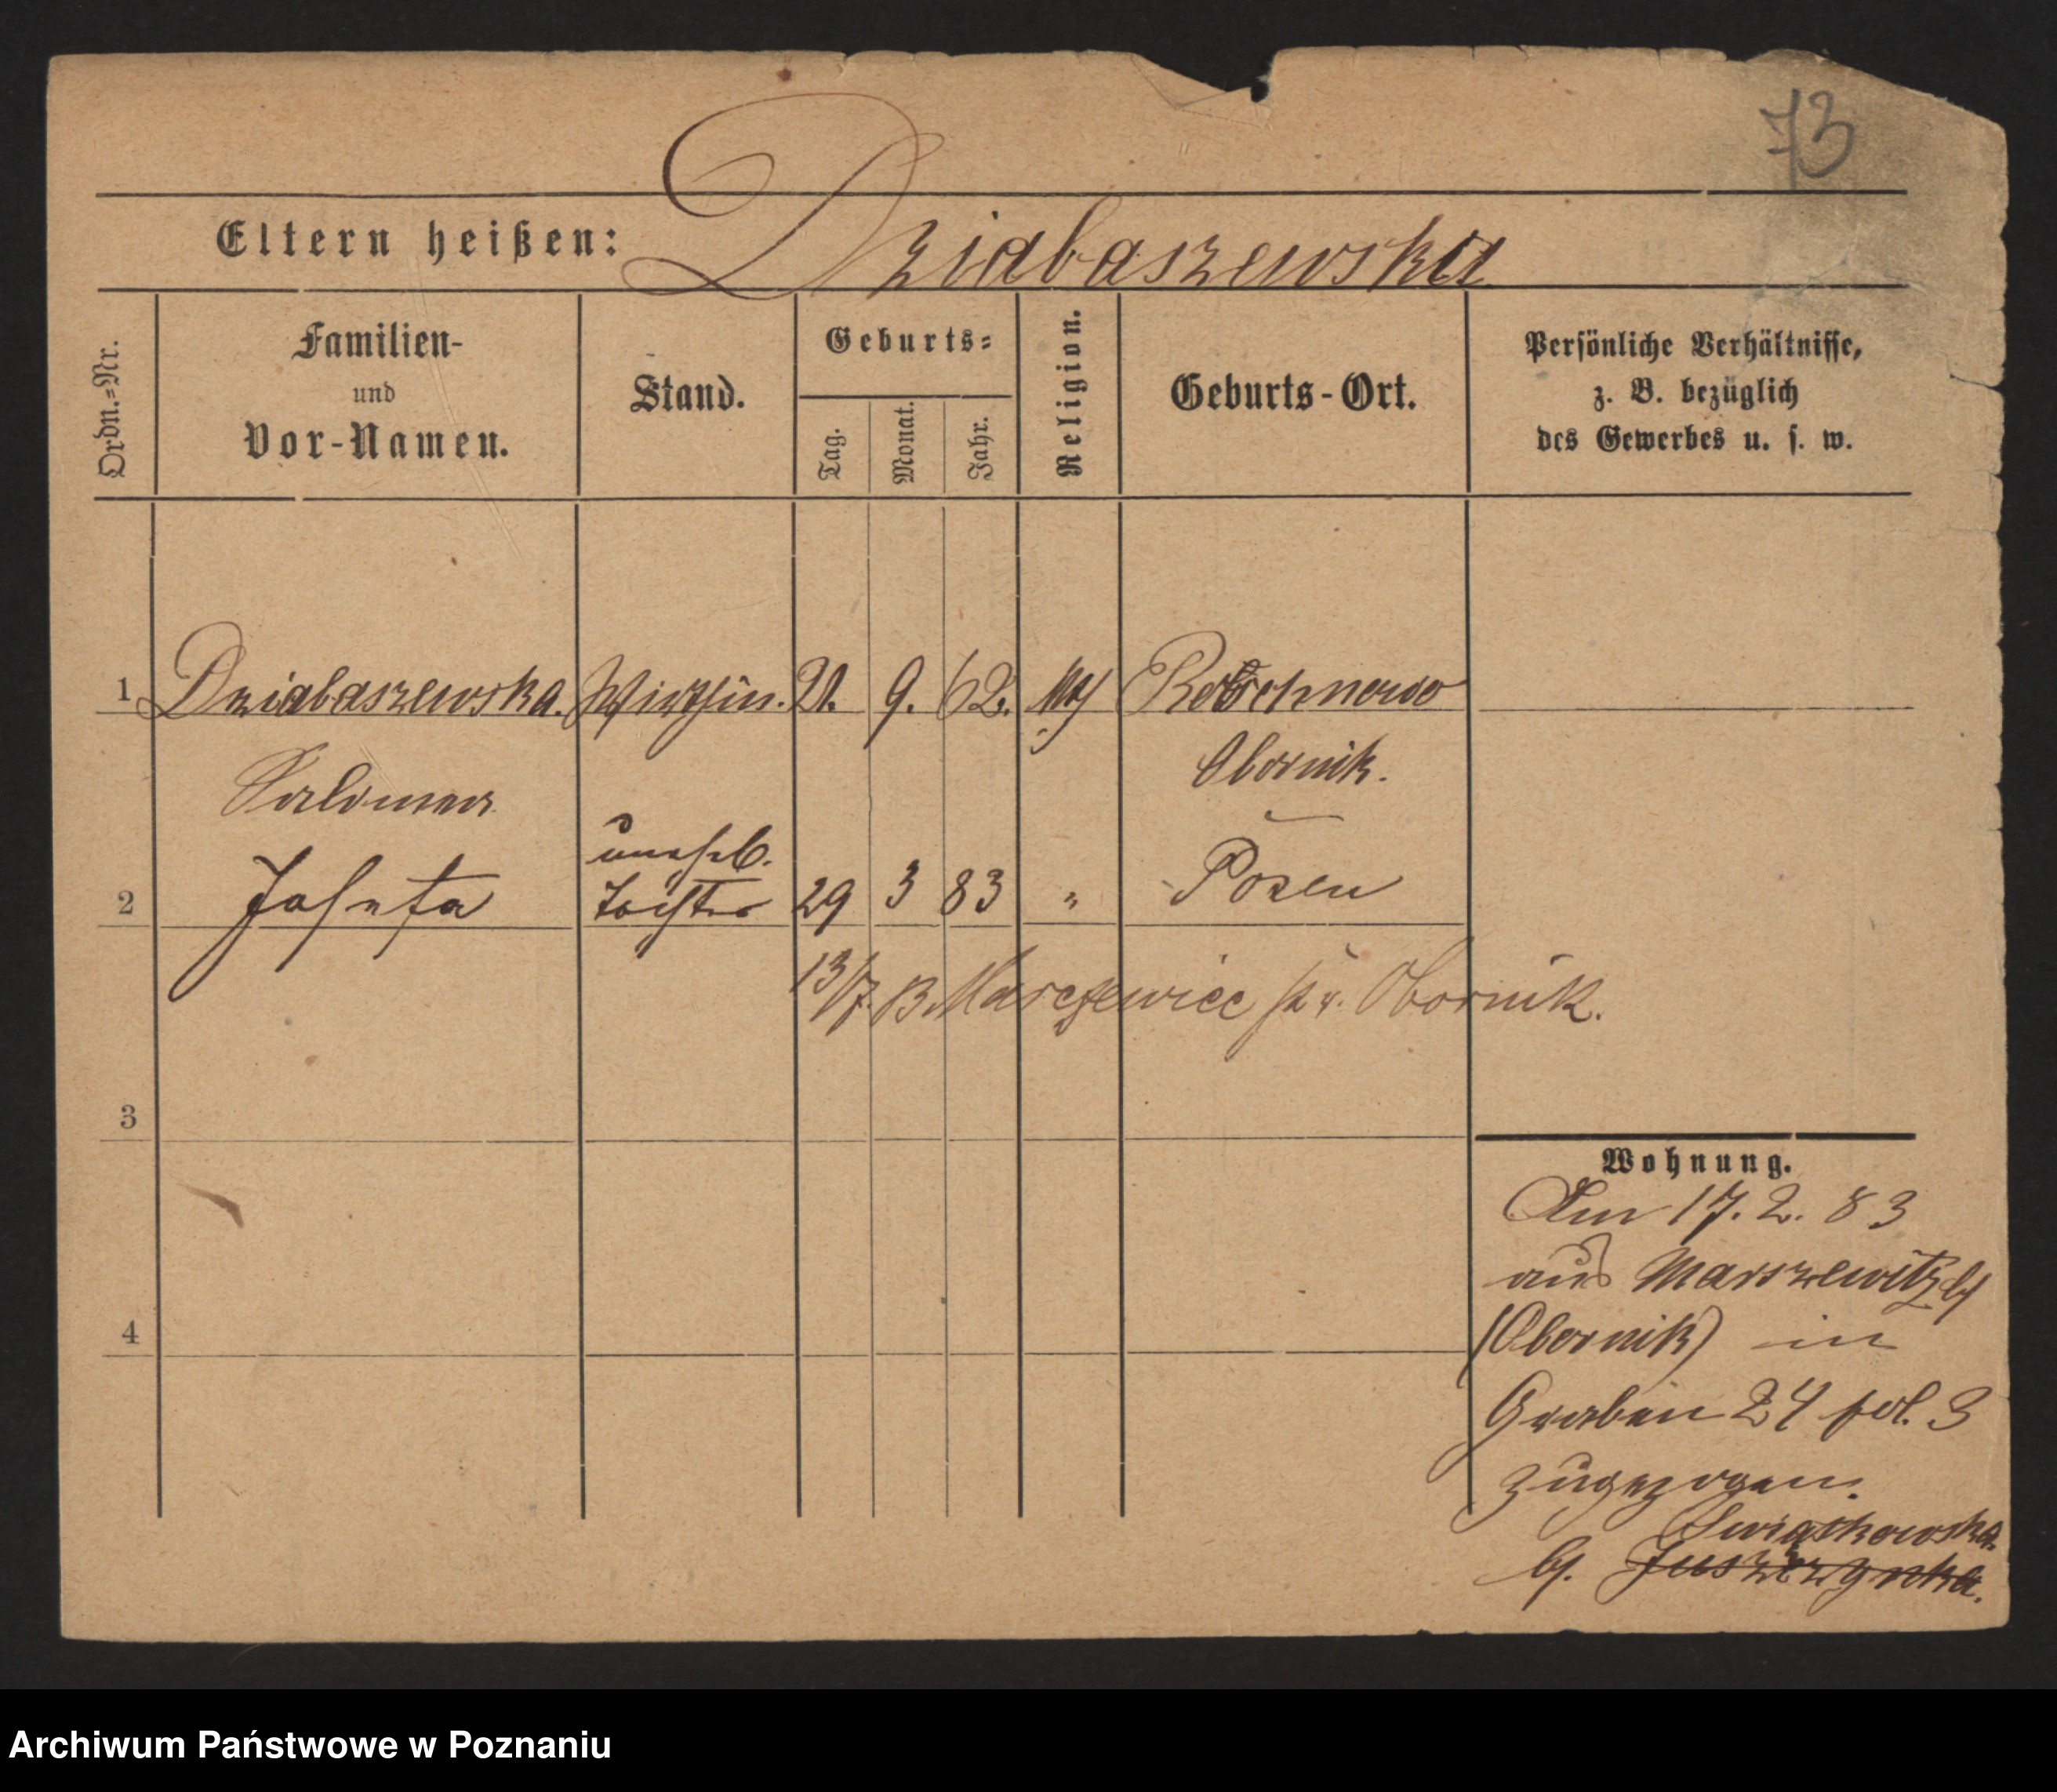 73
Eltern heißen: Dziabaszewska
Ordn.=Nr.
Familien-
und
Vor-Namen.
Stand.
Geburts=
Tag.
Monat.
Jahr.
Religion.
Geburts-Ort.
Persönliche Verhältnisse,
z. B. bezüglich
des Gewerbes u. s. w.
1 Dziabaszewska. Wirthin. 21. 9. 62.
Salomea Obornik.
unehel.
2 Josefa Tochter 29 3 83 " Posen
13/7. 83 Obornik.
3
4
Wohnung.
Am 17. 2. 83
aus Marszewitz
(Obornik) in
Graben 24 pol. 3
zugezogen.
Swiątkowska.
b/. Juszczynska.
Archiwum Państwowe w Poznaniu